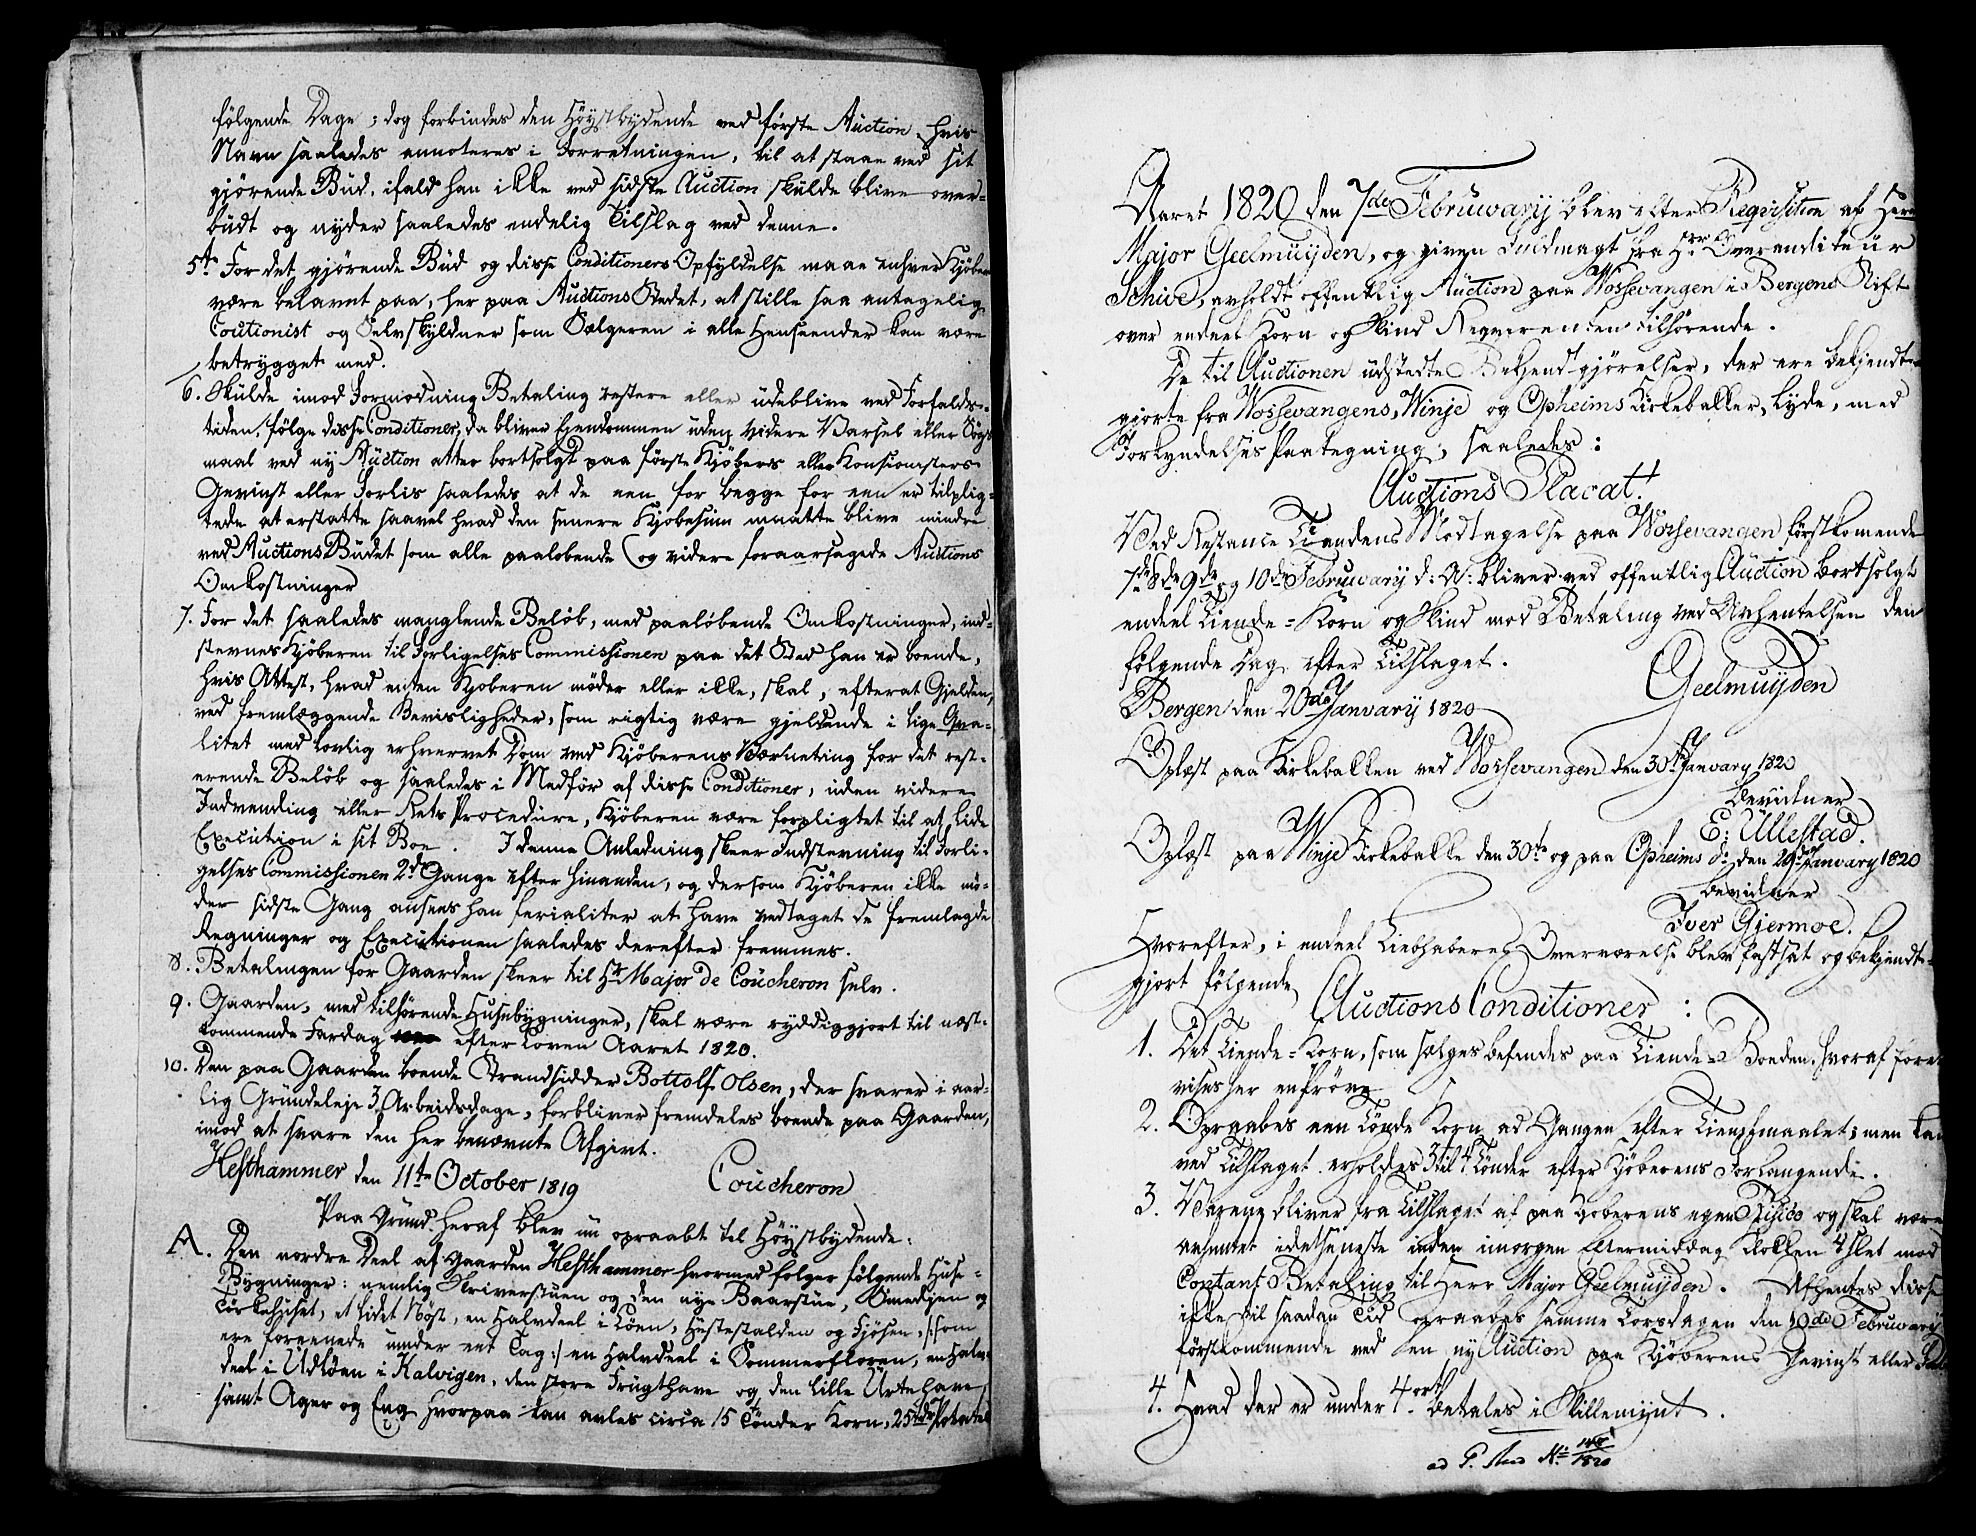 følgende Dage; dog forbindes den Høystbydende ved første Auction, hvis
Navn saaledes annoteres i Forretningen, til at staae ved sit
gjörende Bud, ifald han ikke ved sidste Auction skulde blive over-
budt og nyder saaledes endelig Tilslag ved denne.
5te For det gjörende Bud og disse Conditioners Opfyldelse maae enhver Kjöber
være belavet paa, her paa Auctions Stedet, at stille saa antagelig
Coutionist og Selvskyldner som Sælgeren i alle Henseender kan være
betrygget med.
6. Skulde imod Formodning Betaling restere eller udeblive ved Forfalds-
tiden, følge disse Conditioner, da bliver Eiendommen uden videre Varsel eller Søgs
maal ved ny Auction atter bortsolgt paa første Kjöbers eller Kautionisters
Gevinst eller Forlis saaledes at de een for begge for een er tilplig-
tede at erstatte saavel hvad den senere Kjöbesum maatte blive mindre
ved Auctions Budet som alle paalobende og videre foraarsagede Auctions
Omkostninger
7. For det saaledes manglende Beløb, med paaløbende Omkostninger, ind-
stevnes Kjöberen til Forligelses Commissionen paa det Sted han er boende,
hvis Attest, hvad enten Kjoberen møder eller ikke, skal, efterat Gjelden,
ved fremlæggende Bevisligheder, som rigtig være gjeldende i lige Qva-
litet med lovlig erhvervet Dom ved Kjöberens Værneting for det rest-
erende Beløb og saaledes i Medfør af disse Conditioner, uden videre
Indvending eller Rets Procedure, Kjöberen være forpligtet til at lide
Execution i sit Boe. I denne Anledning skeer Indstevning til Forli-
gelses Commissionen 2de Gange efter hinanden, og dersom Kjöberen ikke mö-
der sidste Gang ansees han serialiter at have vedtaget de fremlagde
Regninger og Executionen saaledes derefter fremmes.
8. Betalingen for Gaarden skeer til Hr Major de Coucheron selv.
9. Gaarden, med tilhørende Huusebygninger, skal være ryddiggjort til næst-
kommende Fardag efter Loven Aaret 1820.
10. Den paa Gaarden boende Strandsidder Bottolf Olsen, der svarer i aar-
lig Grundeleje 3 Arbeidsdage, forbliver fremdeles boende paa Gaarden,
imod at svare den her benævnte Afgivt.
Hesthammer den 11te October 1819 Coucheron
Paa Grund heraf blev nu opraabt til Høystbydende:
A. Den nordre Deel af Gaarden Hesthammer hvormed følger følgende Huse-
Bygninger: nemlig Skriverstuen og den nye Baarstue, Smedjen og
Tørkehuset, et lidet Nøst, en Halvdeel i Løen, Hestestalden og Fjøsen /:som
ere foreenede under eet Tag:/ en Halvdeel i Sommerfloren, en Halv-
deel i Udløen i Kalvigen, den store Frugthave og den lille Urtehave
samt Ager og Eng hvorpaa kan avles circa 15 Tönder Korn, 25 tdr Potatos
Aaret 1820 den 7de Februwarij blev efter Reqvisition af Herr
Major Geelmuijden, og given Fuldmagt fra Hrr Overauditeur
Schive, avholdt offentlig Auction paa Wossevangen i Bergens Stift
over endeel Korn og Skind Reqvirenten tilhørende.
De til Auctionen udstedte Bekjendtgjørelser, der ere bekjendt-
gjorte fra Wossevangens, Winje og Opheims Kirkebakker, lyde, med
Forkyndelses Paategning, saaledes:
Auctions Placat!
Ved Restance Tiendens Modtagelse paa Wossevangen førstkomende
7de 8de 9de og 10de Februwarij d: A: bliver ved offentlig Auction bortsolgt
endeel Tiende-Korn og Skind mod Betaling ved Avhentelsen den
følgende Dag efter Tilslaget.
Bergen den 20de Janvarij 1820 Geelmuijden
Oplæst paa Kirkebakken ved Wossevangen den 30te Janvary 1820
bevidner
E: Ullestad.
Oplæst paa Winje Kirkebakke den 30te og paa Opheims do den 29de Janvary 1820
bevidner
Iver Gjermoe.
Hvorefter, i endeel Liebhaberes Overværelse blev fastsat og bekjendt-
gjort følgende
Auctions Conditioner:
1. Det Tiende-Korn, som sælges befindes paa Tiende-Boeden, hvoraf fore-
vises her en prøve
2. Opraabes een Tönde Korn ad Gangen efter Tiendemaalet; men kan
ved Tilslaget erholdes 3 til 4 Tönder efter Kjöberens Forlangende.
3. Varene bliver fra Tilslaget af paa Kjoberens egen Risico og skal være
avhentet idetseneste inden imorgen Eftermiddag Klokken 4 slet mod
Contant Betaling til Herr Major Geelmuijden. Afhentes disse
ikke til saadan Tid opraabes samme Torsdagen den 10de Februwarij
førstkommende ved en ny Auction paa Kjöberens Gevinst eller
4. Hvad der er under 4 ort betales i Skillemynt.